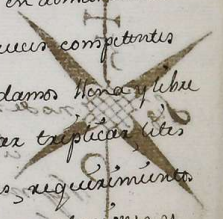 en
ueces competentes
damos llena y libre
ar triplicar, litis
s, requerimientos